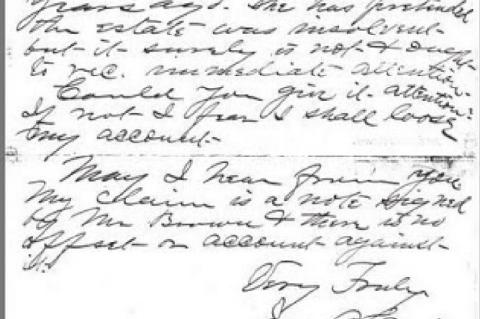 years ago. She has pretended
the estate was insolvent
but it surely is not & ought
to rec. immediate attention.
Could you give it attention?
If not I fear I shall loose
my account.
May I hear from you
My claim is a note signed
by Mr Brown & there is no
offset or account against
it.
Very Truly